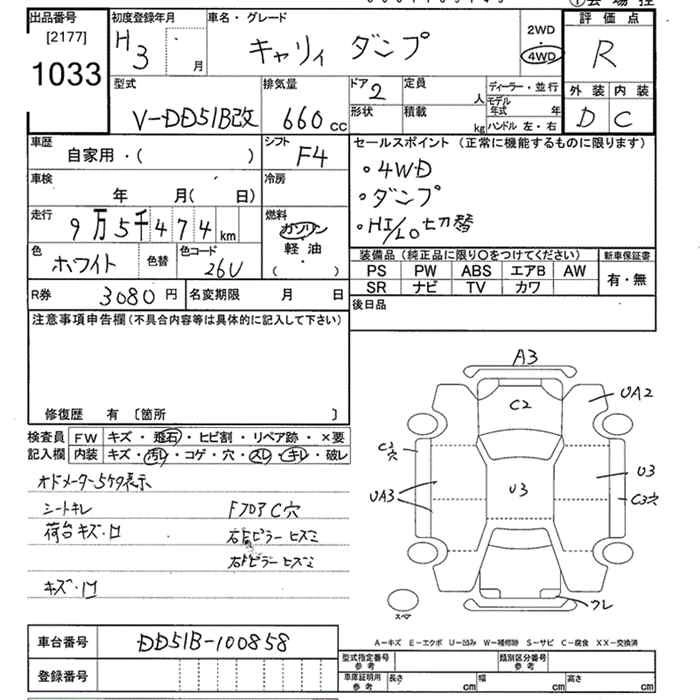 出品番号
[2177]
1033
初度登録年月
H 3 月
車名・グレード
キャリイ ダンプ
2WD
・
4WD
評価点
R
外装 内装
D C
型式
V-DD51B改
排気量
660 cc
ドア 2
形状
定員 人
積載 kg
ディーラー・並行
モデル年式 年
ハンドル 左・右
車歴
自家用・( )
シフト
F4
車検
年 月( 日)
冷房
走行
9万5千474 km
燃料
ガソリン
軽油
( )
色
ホワイト
色替
色コード
26U
R券 3080円
名変期限 月 日
セールスポイント (正常に機能するものに限ります)
・4WD
・ダンプ
・HI/LO切替
装備品 (純正品に限り○をつけてください)
新車保証書
PS PW ABS エアB AW
SR ナビ TV カワ
有・無
後日品
注意事項申告欄(不具合内容等は具体的に記入して下さい)
修復歴 有 〔箇所 〕
検査員 FW キズ・飛石・ヒビ割・リペア跡・×要
記入欄 内装 キズ・汚レ・コゲ・穴・スレ・キレ・破レ
オドメーター5ケタ表示
シートキレ
Fフロア C穴
荷台キズ・凹
右Fピラー ヒズミ
キズ・凹
A3
C2
UA2
C3穴
UA3
U3
U3
C3穴
クレ
スペア
車台番号 DD51B-100858
登録番号
A−キズ E−エクボ U−凹み W−補修跡 S−サビ C−腐食 XX−交換済
型式指定番号参考
類別区分番号参考
車庫証明用参考
長さ cm
幅 cm
高さ cm